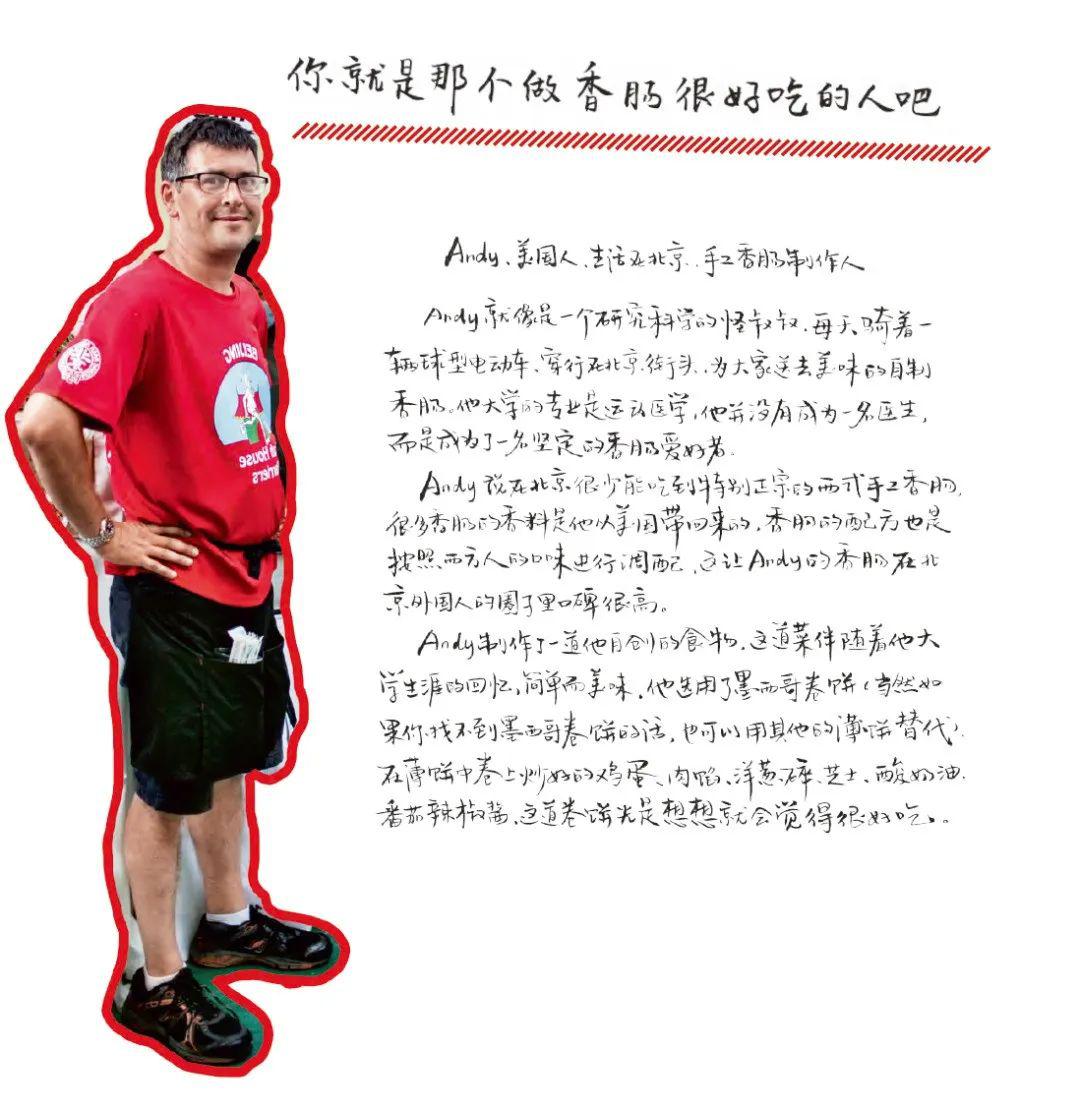 你就是那个做香肠很好吃的人吧
Andy、美国人、生活在北京、手工香肠制作人
Andy就像是一个研究科学的怪叔叔，每天骑着一
辆球型电动车、穿行在北京街头、为大家送去美味的自制
香肠。他大学的专业是运动医学，他并没有成为一名医生，
而是成为了一名坚定的香肠爱好者。
Andy说在北京很少能吃到特别正宗的西式手工香肠，
很多香肠的香料是他从美国带回来的，香肠的配方也是
按照西方人的口味进行调配，这让Andy的香肠在北
京外国人的圈子里口碑很高。
Andy制作了一道他自创的食物，这道菜伴随着他大
学生涯的回忆，简单而美味，他选用了墨西哥卷饼（当然如
果你找不到墨西哥卷饼的话，也可以用其他的薄饼替代），
在薄饼中卷上炒好的鸡蛋、肉馅、洋葱碎、芝士、酸奶油、
番茄辣椒酱，这道卷饼光是想想就会觉得很好吃。
BEIJING
House